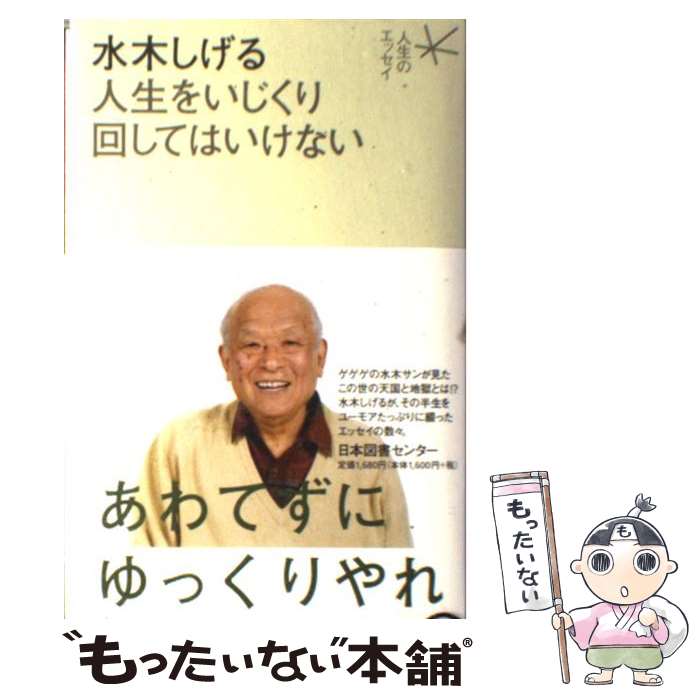 水木しげる
人生をいじくり
回してはいけない
人生の
エッセイ
ゲゲゲの水木サンが見た
この世の天国と地獄とは!?
水木しげるが、その半生を
ユーモアたっぷりに綴った
エッセイの数々。
日本図書センター
定価1,680円(本体1,600円+税)
あわてずに
ゆっくりやれ
もったいない
も
"もったいない"本舗®